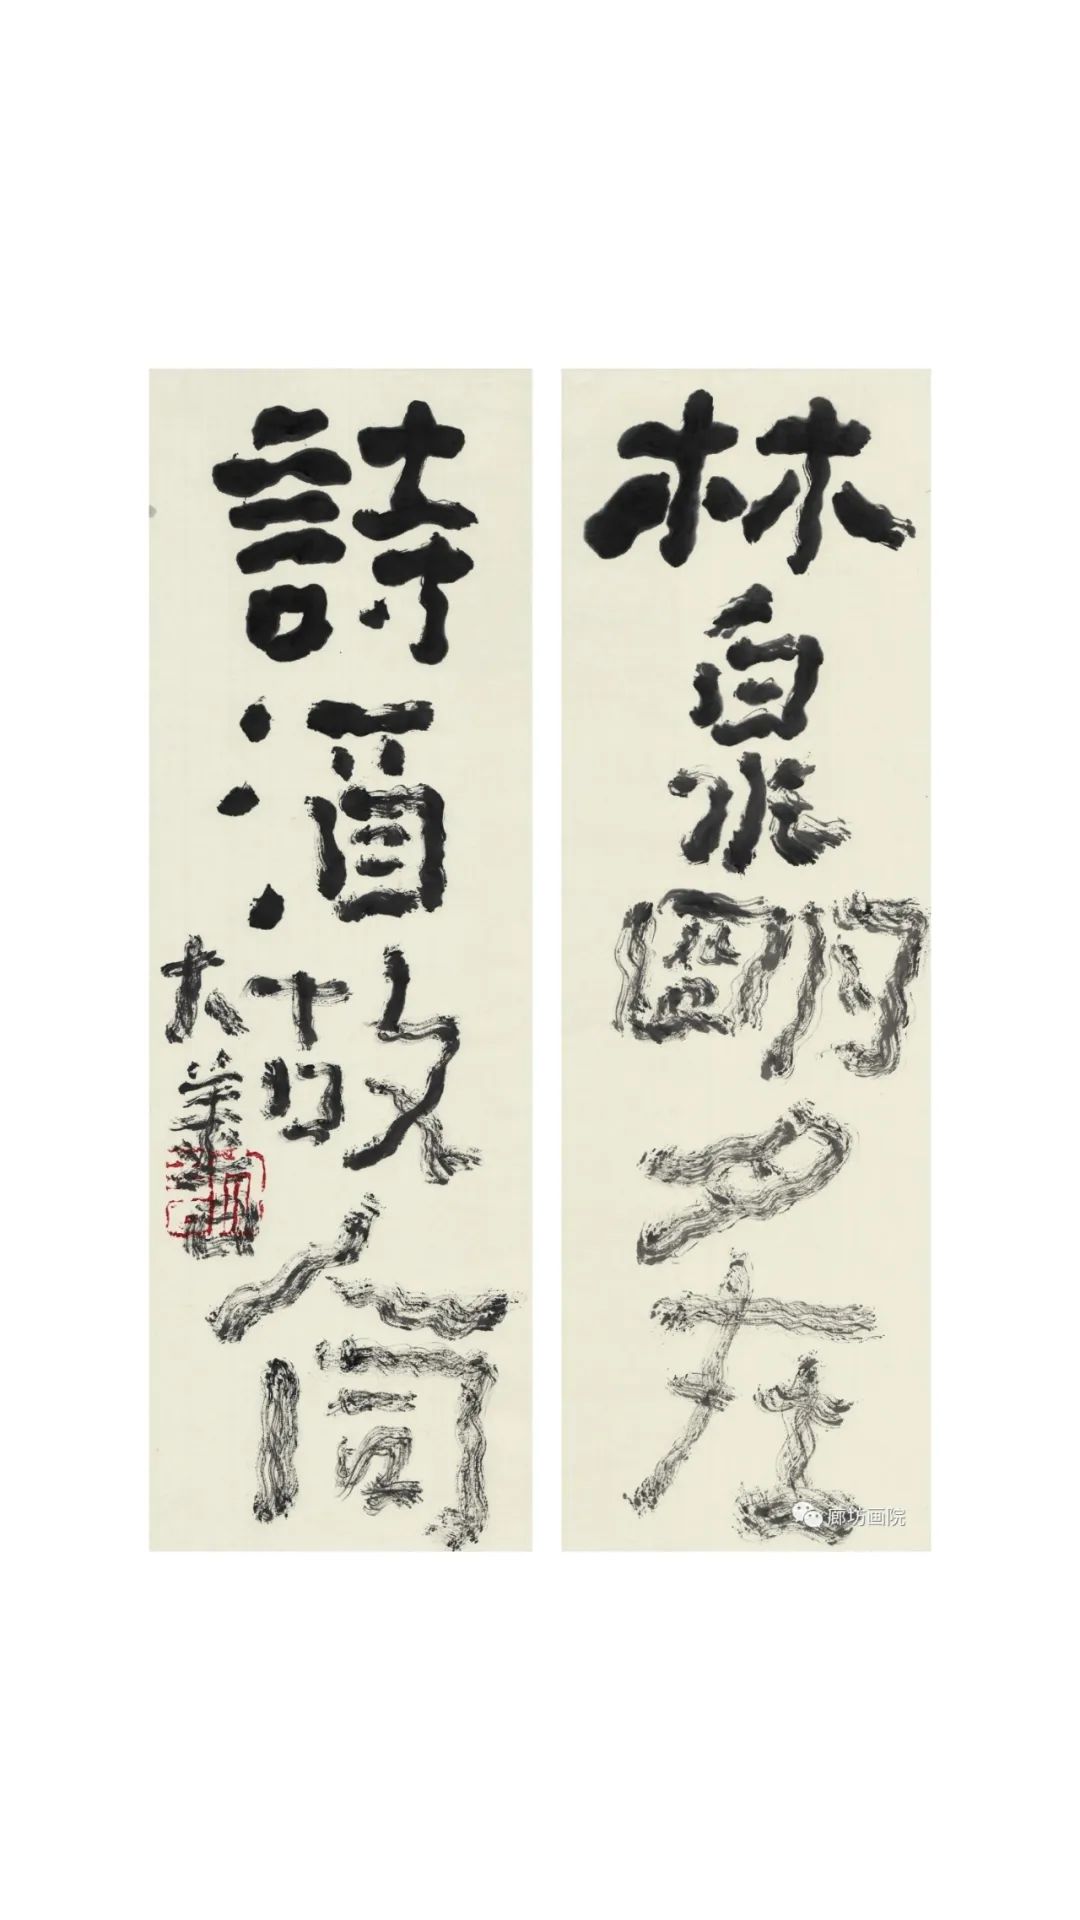 林泉朙月在
詩酒故人同
廊坊画院